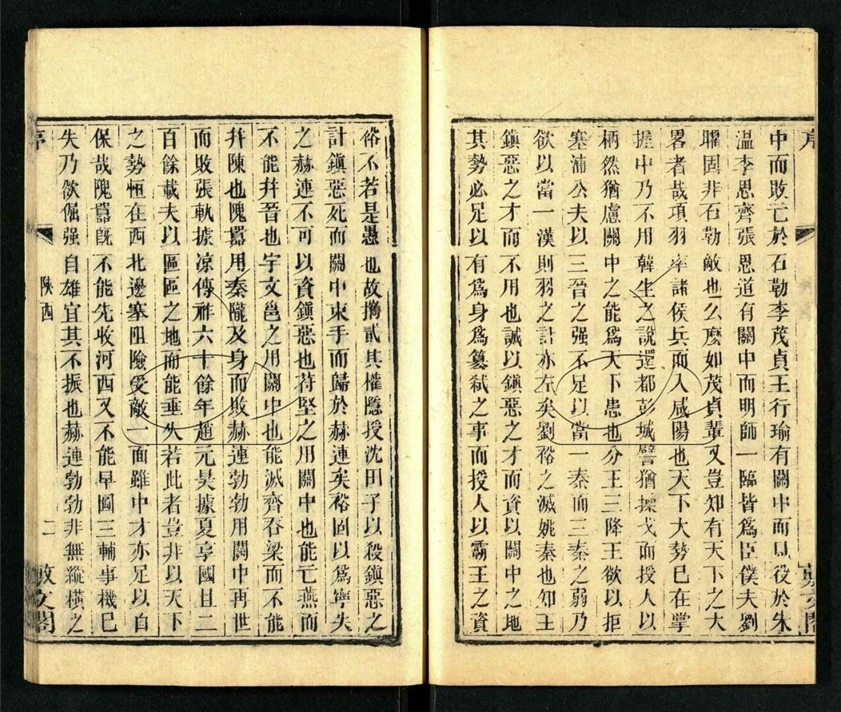 中而敗亡於石勒李茂貞王行瑜有關中而見役於朱
溫李思齊張思道有關中而明師一臨皆為臣僕夫劉
曜固非石勒敵也么麽如茂貞輩又豈知有天下之大
畧者哉項羽率諸侯兵而入咸陽也天下大勢已在掌
握中乃不用韓生之說還都彭城譬猶操戈而授人以
柄然猶慮關中之能為天下患也分王三降王欲以拒
塞沛公夫以三晉之强不足以當一秦而三秦之弱乃
欲以當一漢則羽之計亦左矣劉裕之滅姚秦也知王
鎮惡之才而不用也誠以鎮惡之才而資以關中之地
其勢必足以有為身為篡弒之事而授人以霸王之資
裕不若是愚也故攜貳其權隱授沈田子以殺鎮惡之
計鎮惡死而關中束手而歸於赫連矣裕固以為寧失
之赫連不可以資鎮惡也苻堅之用關中也能亡燕而
不能幷晉也宇文邕之用關中也能滅齊吞梁而不能
幷陳也隗囂用秦隴及身而敗赫連勃勃用關中再世
而敗張軌據凉傳祚六十餘年趙元昊據夏享國且二
百餘載夫以區區之地而能垂久若此者豈非以天下
之勢恒在西北邊塞阻險受敵一面雖中才亦足以自
保哉隗囂旣不能先收河西又不能早圖三輔事機已
失乃欲倔强自雄宜其不振也赫連勃勃非無縱橫之
序
陝西
二
敷文閣